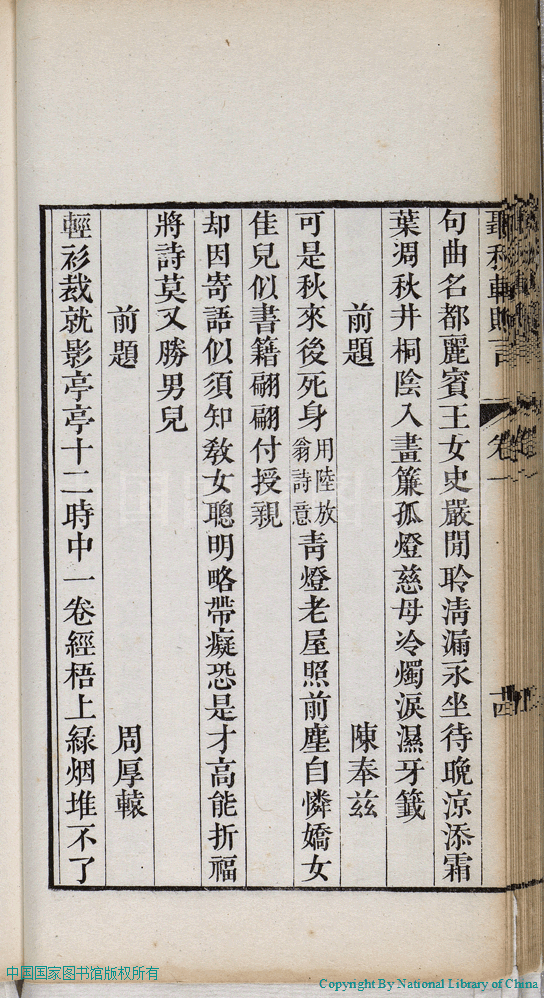 聽秋軒贈言 卷一 十四
句曲名都麗賓王女史嚴閒聆淸漏永坐待晩涼添霜
葉凋秋井桐陰入畫簾孤燈慈母冷燭淚濕牙籤
前題 陳奉兹
可是秋來後死身用陸放翁詩意靑燈老屋照前塵自憐嬌女
佳兒似書籍翩翩付授親
却因寄語似須知敎女聰明略帶癡恐是才高能折福
將詩莫又勝男兒
前題 周厚轅
輕衫裁就影亭亭十二時中一卷經梧上綠烟堆不了
中国国家图书馆版权所有
Copyright By National Library of China